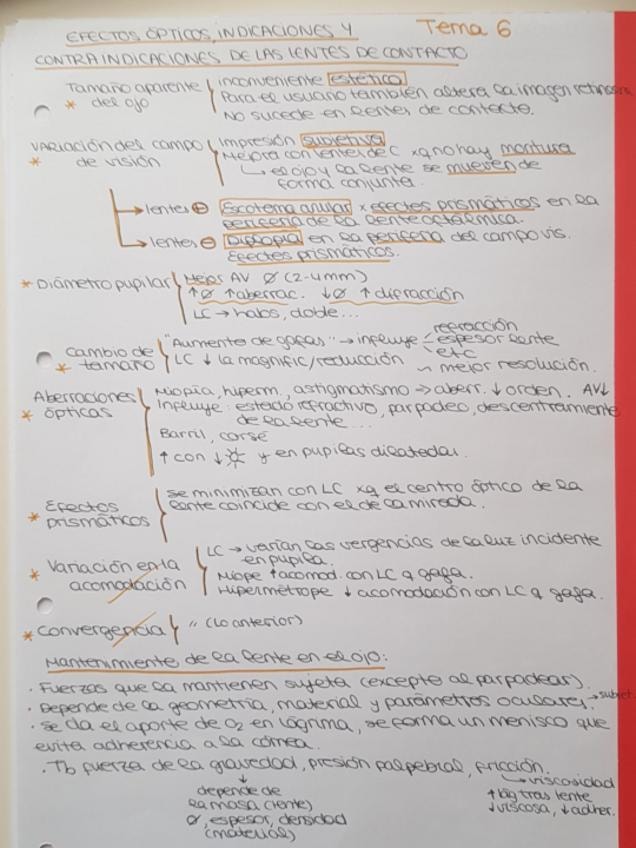 EFECTOS ÓPTICOS, INDICACIONES Y Tema 6
CONTRAINDICACIONES DE LAS LENTES DE CONTACTO
Tamaño aparente inconveniente estético
* del ojo Para el usuario también altera la imagen retiniana
No sucede en lentes de contacto.
Variación del campo Impresión subjetiva
* de visión Mejora con lentes de C xq no hay montura
↳ el ojo y la lente se mueven de
forma conjunta.
→ lentes ⊕ Escotoma anular x efectos prismáticos en la
periferia de la lente oftálmica.
→ lentes ⊖ Diplopia en la periferia del campo vis.
Efectos prismáticos.
* Diámetro pupilar Mejor AV Ø (2-4mm)
↑Ø ↑aberrac. ↓Ø ↑ difracción
LC → halos, doble...
Cambio de "Aumento de gafas" → influye refracción
espesor lente
etc
* tamaño LC ↓ la magnific/reducción ~ mejor resolución.
Aberraciones Miopía, hiperm., astigmatismo → aberr. ↓ orden. AV↓
* ópticas Influye: estado refractivo, parpadeo, descentramiento
de la lente...
Barril, corsé
↑ con ↓☼ y en pupilas dilatadas.
Efectos se minimizan con LC xq el centro óptico de la
* prismáticos lente coincide con el de la mirada.
Variación en la LC → varían las vergencias de la luz incidente
en pupila.
* acomodación Miope ↑acomod. con LC q gafa.
Hipermétrope ↓ acomodación con LC q gafa.
* Convergencia " (Lo anterior)
Mantenimiento de la lente en el ojo:
· Fuerzas que la mantienen sujeta (excepto al parpadear).
· Depende de la geometría, material y parámetros oculares. →
· Se da el aporte de O₂ en lágrima, se forma un menisco que
evita adherencia a la córnea.
· Tb fuerza de la gravedad, presión palpebral, fricción.
↓ depende de ↳ viscosidad
la masa (lente) ↑ lág tras lente
Ø, espesor, densidad ↓ viscosa, ↓ adher.
(material)